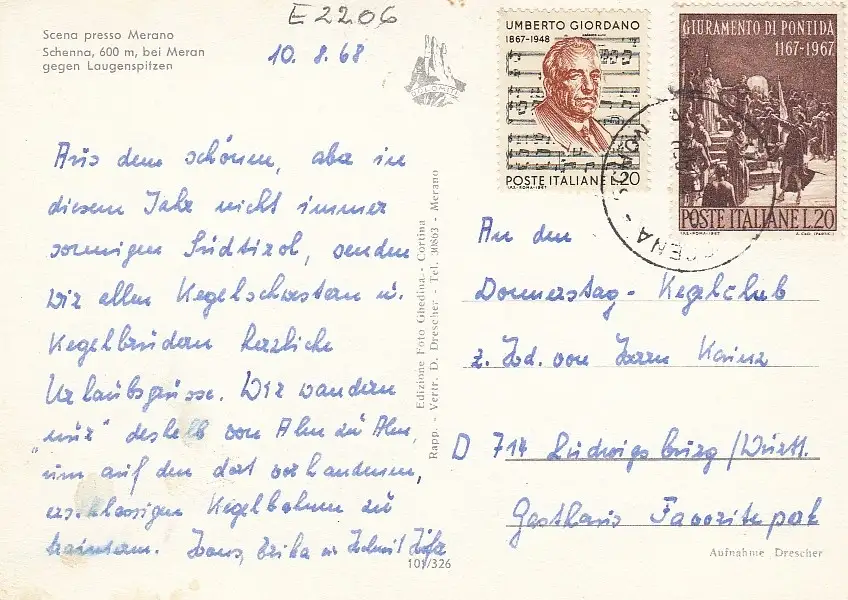 E2206
Scena presso Merano
Schenna, 600 m, bei Meran
gegen Laugenspitzen
10. 8. 68
DOLOMITI
UMBERTO GIORDANO
1867-1948
POSTE ITALIANE L.20
I.P.S.-ROMA-1967
GIURAMENTO DI PONTIDA
1167-1967
POSTE ITALIANE L.20
I.P.S.-ROMA-1967
SCENA
Aus dem schönen, aber in
diesem Jahr nicht immer
sonnigen Südtirol, senden
wir allen Kegelschwestern u.
Kegelbrüdern herzliche
Urlaubsgrüsse. Wir wandern
"nur" deshalb von Alm zu Alm,
um auf den dort vorhandenen,
erstklassigen Kegelbahnen zu
trainieren. Hans, Erika u. Helmut
Edizione Foto Ghedina - Cortina
Rapp. - Vertr. D. Drescher - Tel. 30863 - Merano
An den
Donnerstag - Kegelclub
z. Hd. von Herrn Kainz
D 714 Ludwigsburg/Württ.
Gasthaus Favoritepark
Aufnahme Drescher
101/326